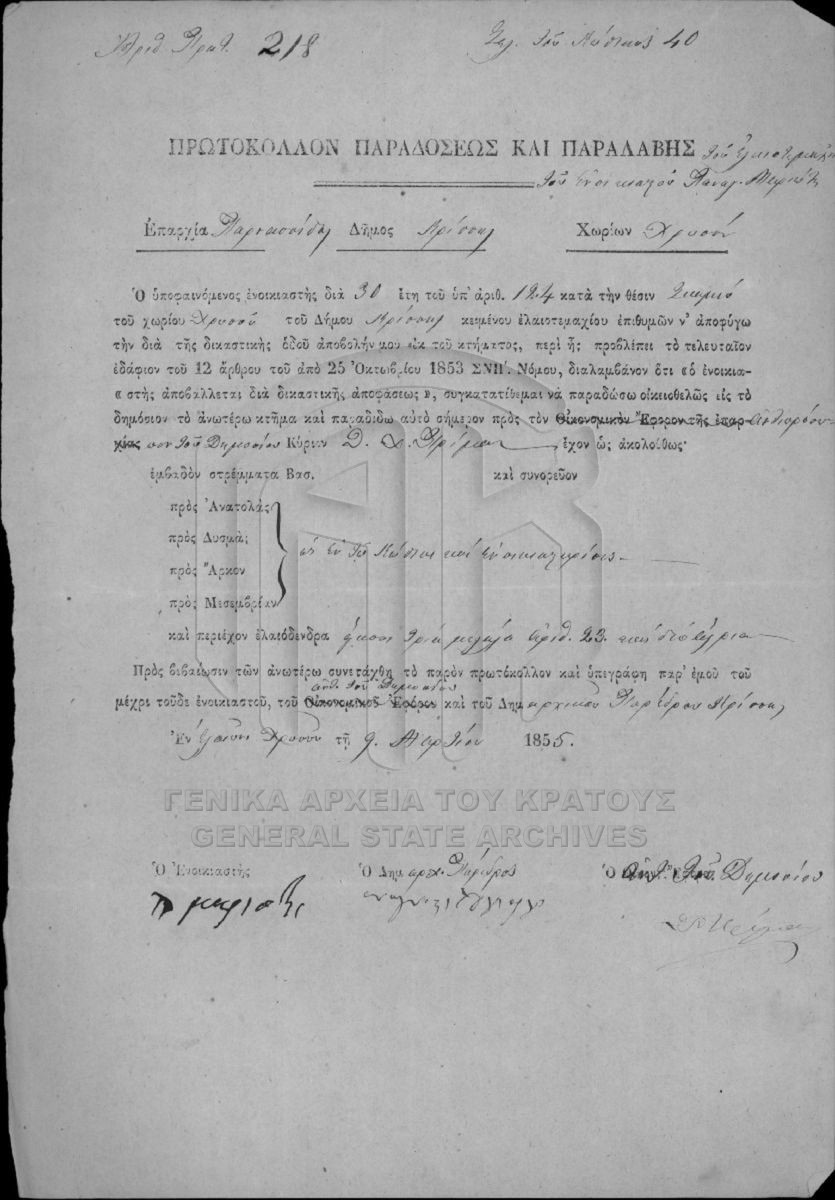 Ἀριθ. Πρωτ. 218
Σελ. τοῦ Κώδικος 40
ΠΡΩΤΟΚΟΛΛΟΝ ΠΑΡΑΔΟΣΕΩΣ ΚΑΙ ΠΑΡΑΛΑΒΗΣ
τοῦ Ἐνοικιαστοῦ Παναγ.
Ἐπαρχία Παρνασσίδος Δῆμος Κρίσσης Χωρίων Χρυσοῦ
Ὁ ὑποφαινόμενος ἐνοικιαστὴς διὰ 30 ἔτη τοῦ ὑπ' ἀριθ. 124 κατὰ τὴν θέσιν
τοῦ χωρίου Χρυσοῦ τοῦ Δήμου Κρίσσης κειμένου ἐλαιοτεμαχίου ἐπιθυμῶν ν' ἀποφύγω
τὴν διὰ τῆς δικαστικῆς ὁδοῦ ἀποβολήν μου ἐκ τοῦ κτήματος, περὶ ἧς προβλέπει τὸ τελευταῖον
ἐδάφιον τοῦ 12 ἄρθρου τοῦ ἀπὸ 25 Ὀκτωβρίου 1853 ΣΝΠʹ. Νόμου, διαλαμβάνον ὅτι «ὁ ἐνοικια-
« στὴς ἀποβάλλεται διὰ δικαστικῆς ἀποφάσεως », συγκατατίθεμαι νὰ παραδώσω οἰκειοθελῶς εἰς τὸ
δημόσιον τὸ ἀνωτέρω κτῆμα καὶ παραδίδω αὐτὸ σήμερον πρὸς τὸν Οἰκονομικὸν Ἔφορον τῆς ἐπαρ-
χίας τοῦ Δημοσίου Κύριον Δ. ἔχον ὡς ἀκολούθως·
ἐμβαδὸν στρέμματα Βασ. καὶ συνορεῦον
πρὸς Ἀνατολάς
πρὸς Δυσμὰς
πρὸς Ἄρκτον
πρὸς Μεσεμβρίαν
ὡς ἐν τῷ Κώδικι καὶ
καὶ περιέχον ἐλαιόδενδρα εἴκοσι τρία μεγάλα ἀριθ. 23.
Πρὸς βιβαίωσιν τῶν ἀνωτέρω συνετάχθη τὸ παρὸν πρωτόκολλον καὶ ὑπεγράφη παρ' ἐμοῦ τοῦ
ἀνθ. τοῦ Δημοσίου
μέχρι τοῦδε ἐνοικιαστοῦ, τοῦ Οἰκονομικοῦ Ἐφόρου καὶ τοῦ Δημαρχικοῦ Παρέδρου Κρίσσης
Ἐν Χρυσοῦ τῇ 9 Μαρτίου 1855.
ΓΕΝΙΚΑ ΑΡΧΕΙΑ ΤΟΥ ΚΡΑΤΟΥΣ
GENERAL STATE ARCHIVES
Ὁ Ἐνοικιαστὴς Ὁ Δημαρχ. Πάρεδρος Ὁ Ἀνθ. τοῦ Δημοσίου